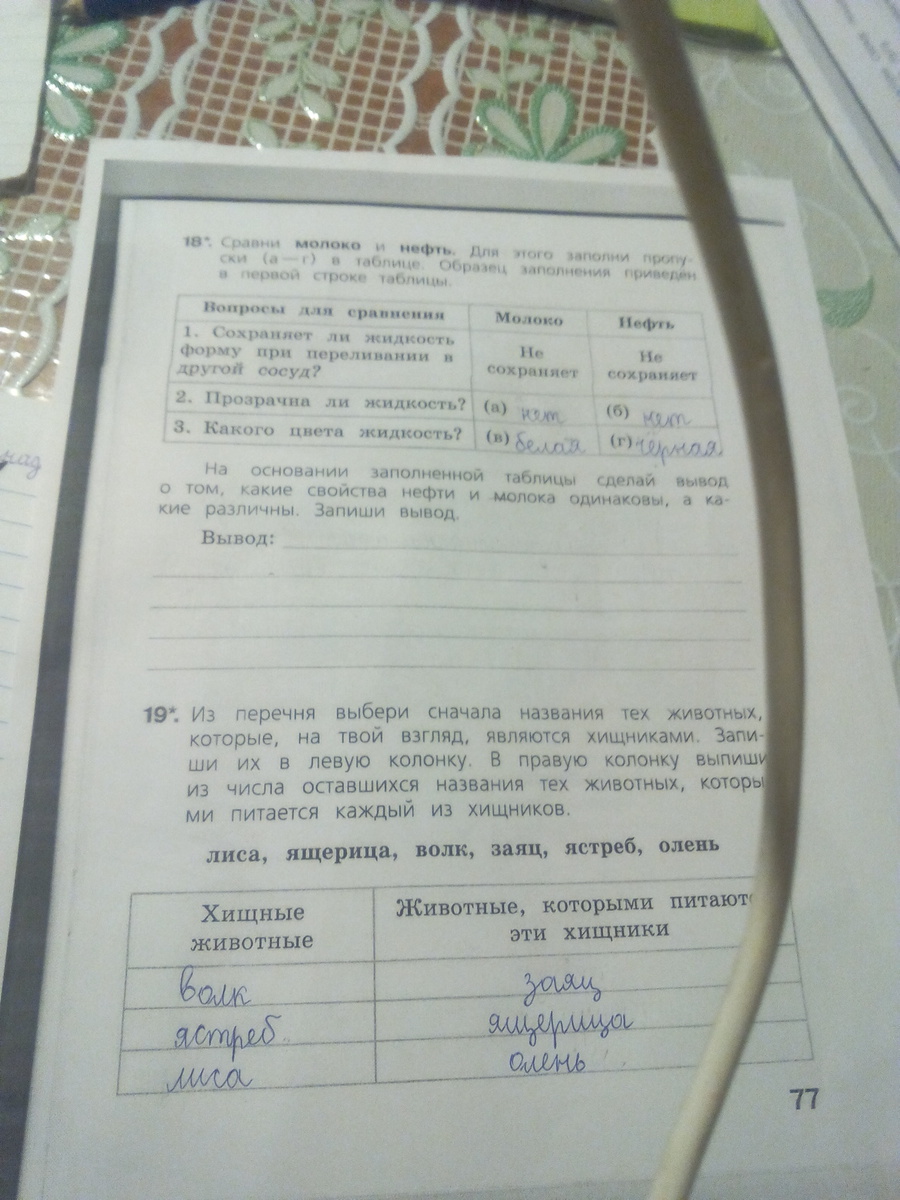 18*. Сравни молоко и нефть. Для этого заполни пропу-
ски (а—г) в таблице. Образец заполнения приведён
в первой строке таблицы.
Вопросы для сравнения Молоко Нефть
1. Сохраняет ли жидкость форму при переливании в другой сосуд? Не сохраняет Не сохраняет
2. Прозрачна ли жидкость? (а) нет (б) нет
3. Какого цвета жидкость? (в) белая (г) чёрная
На основании заполненной таблицы сделай вывод
о том, какие свойства нефти и молока одинаковы, а ка-
кие различны. Запиши вывод.
Вывод:
19*. Из перечня выбери сначала названия тех животных,
которые, на твой взгляд, являются хищниками. Запи-
ши их в левую колонку. В правую колонку выпиши
из числа оставшихся названия тех животных, которы
ми питается каждый из хищников.
лиса, ящерица, волк, заяц, ястреб, олень
Хищные животные
Животные, которыми питают
эти хищники
волк заяц
ястреб ящерица
лиса олень
77